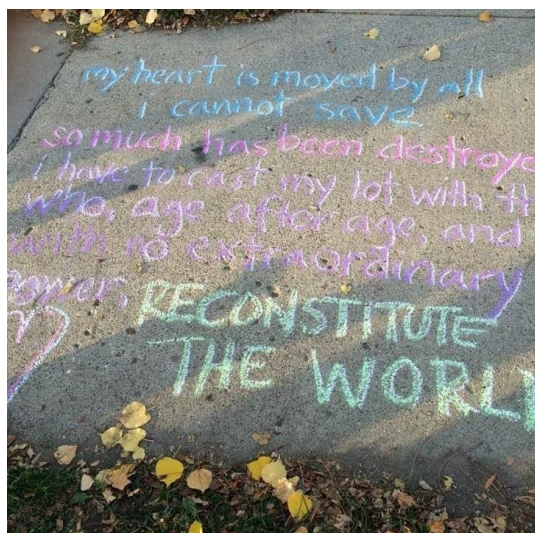 my heart is moved by all
i cannot save
so much has been destroye
i have to cast my lot with th
who, age after age, and
with no extraordinary
power,
RECONSTITUTE
THE WORLD